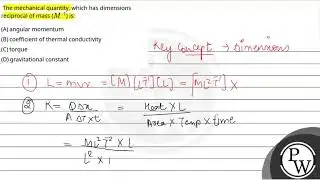 The mechanical quantity, which has dimensions
reciprocal of mass (M⁻¹) is:
(A) angular momentum
(B) coefficient of thermal conductivity
(C) torque
(D) gravitational constant
Key Concept → Dimensions
① L = mvr = [M][LT⁻¹][L] = [ML²T⁻¹] X
② K = QΔx / AΔT×t = Heat × L / Area × Temp × time
= ML²T⁻² × L / L² ×
PW